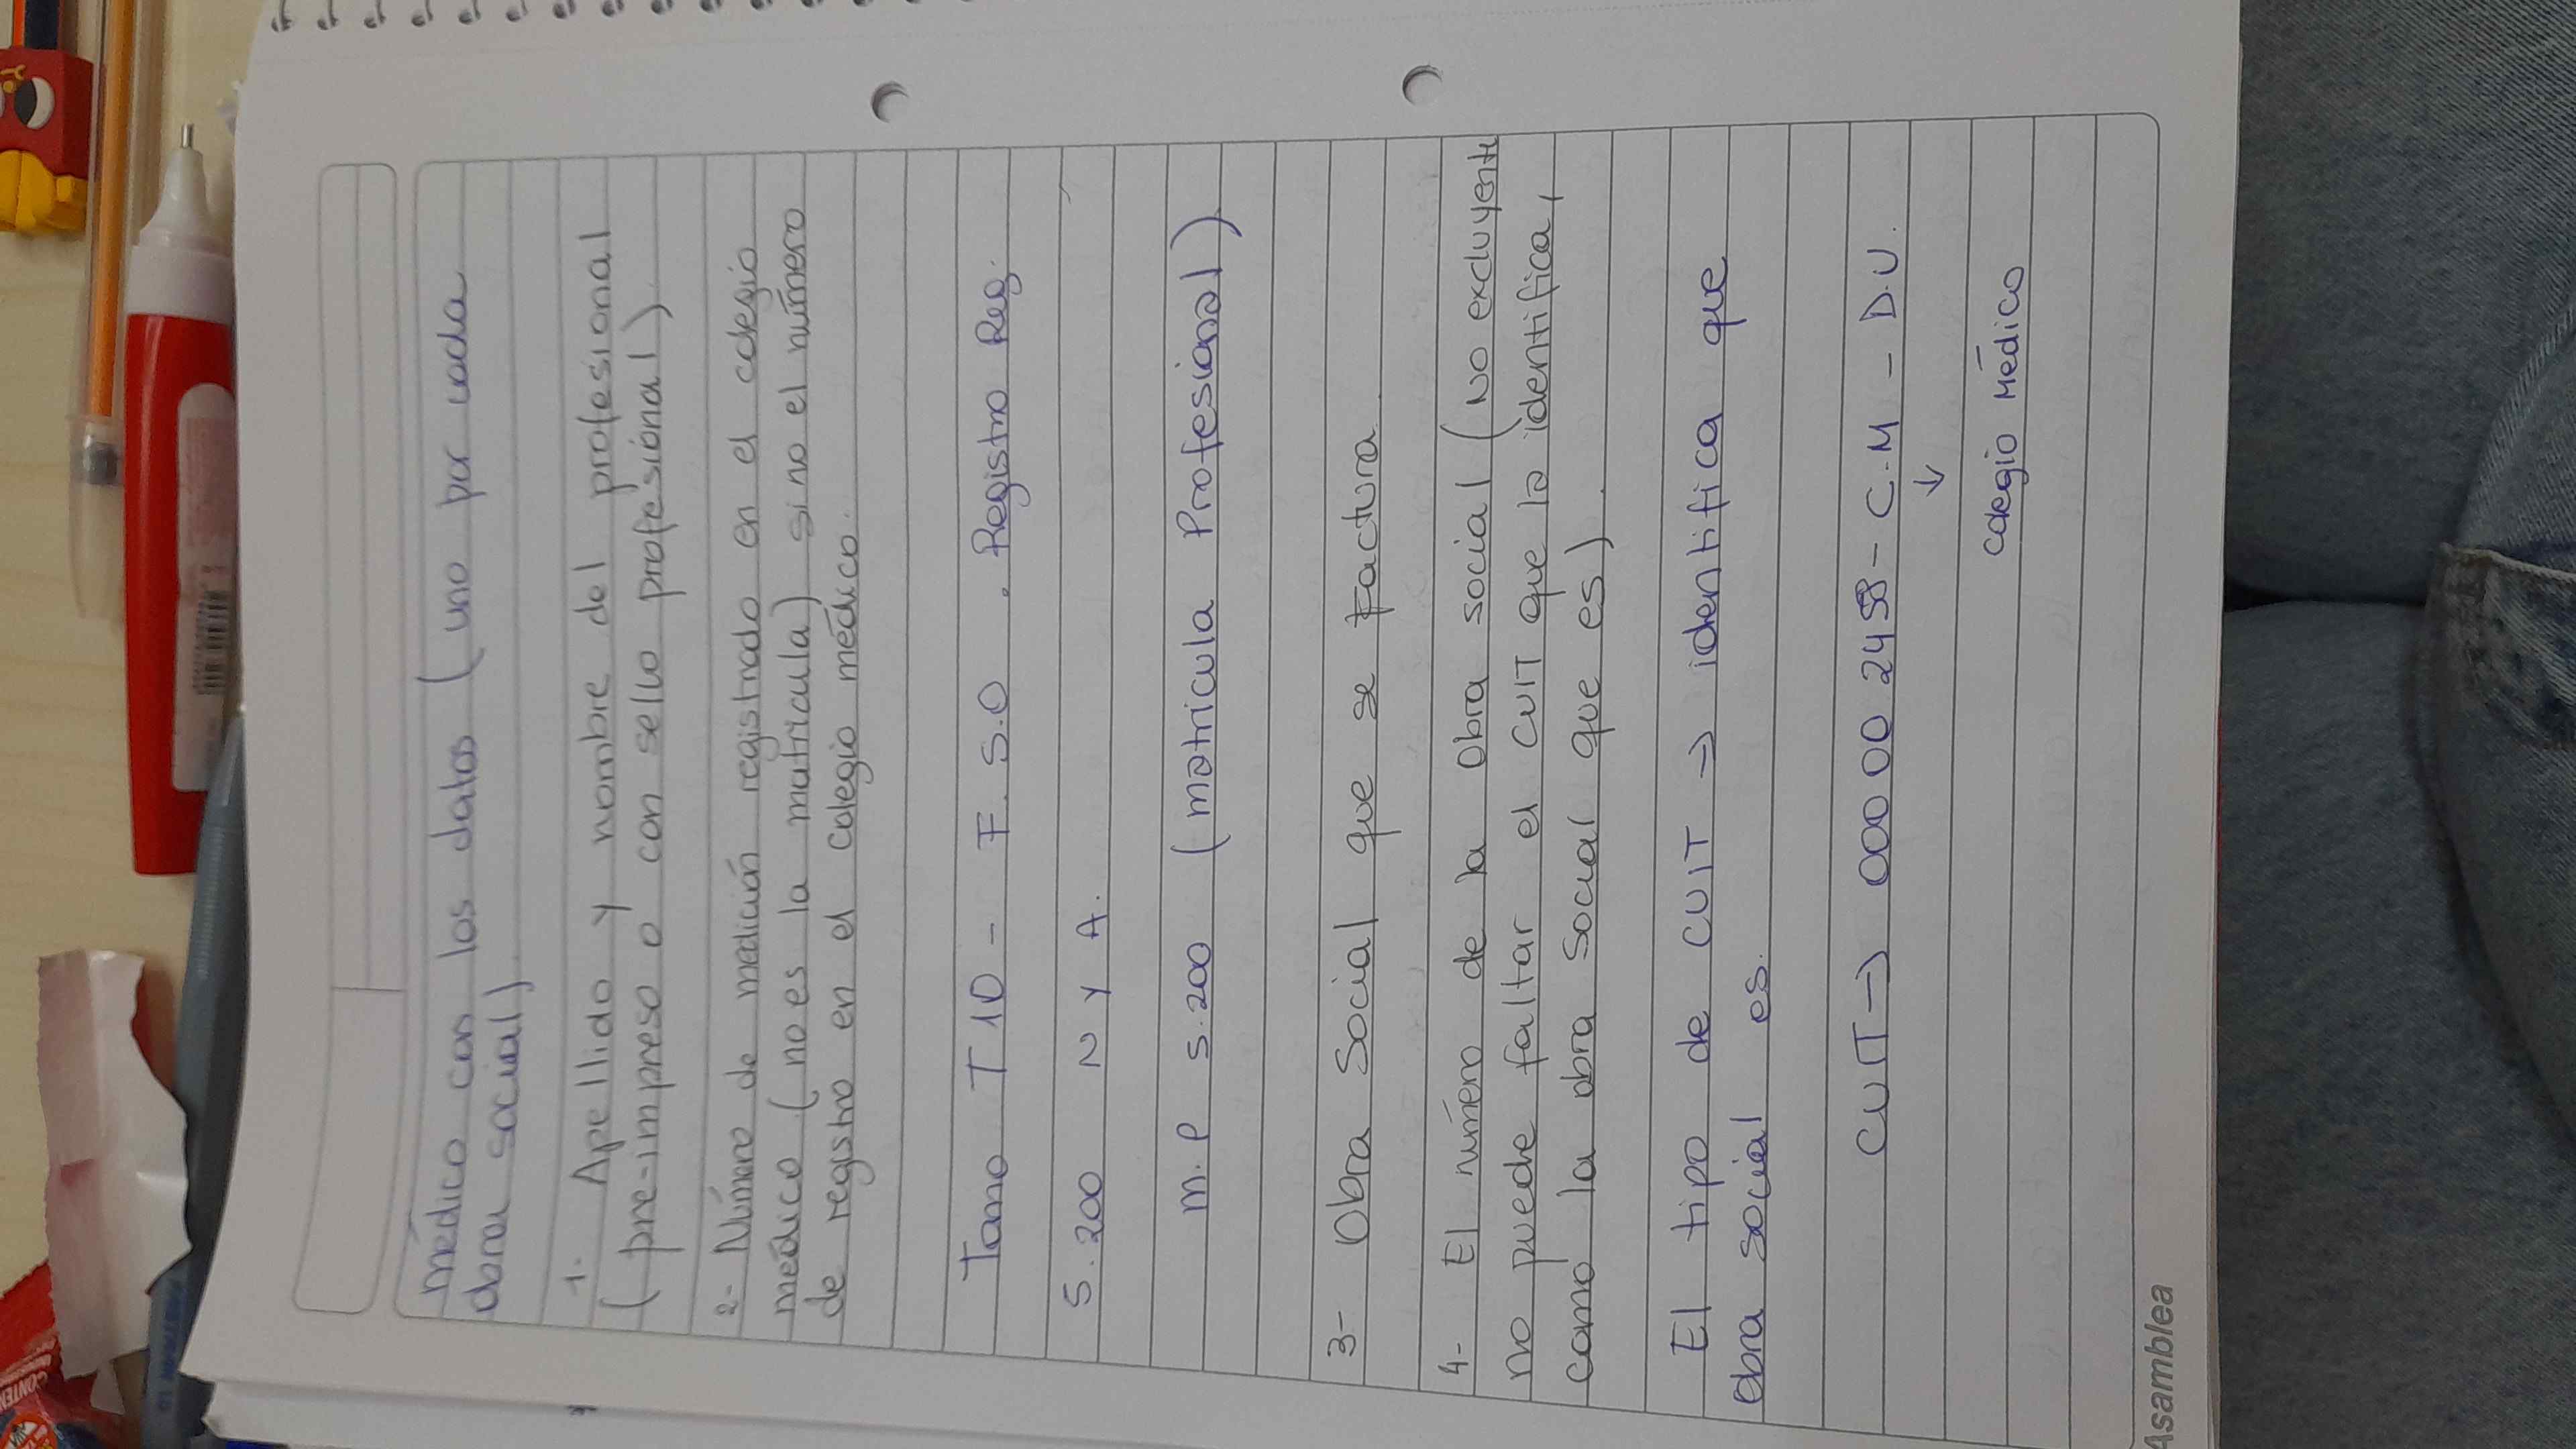 médico con los datos (uno por cada
obra social).
1- Apellido y nombre del profesional
(pre-impreso o con sello profesional).
2- Número de medición registrado en el colegio
médico (no es la matricula) si no el número
de registro en el colegio médico.
Tomo T 10 - F. S.O . Registro Reg.
S. 200 N Y A.
M. P S. 200 (matricula Profesional)
3- Obra Social que se Factura.
4- El número de la Obra social (NO excluyente
no puede faltar el CUIT que la identifica,
como la obra social que es).
El tipo de CUIT → identifica que
obra social es.
CUIT → 000 00 2458 - C.M - D.U.
↓
Colegio Médico
Asamblea